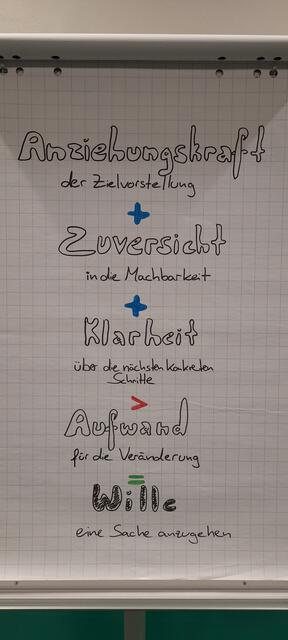 Anziehungskraft
der Zielvorstellung
+
Zuversicht
in die Machbarkeit
+
Klarheit
über die nächsten konkreten
Schritte
>
Aufwand
für die Veränderung
=
Wille
eine Sache anzugehen